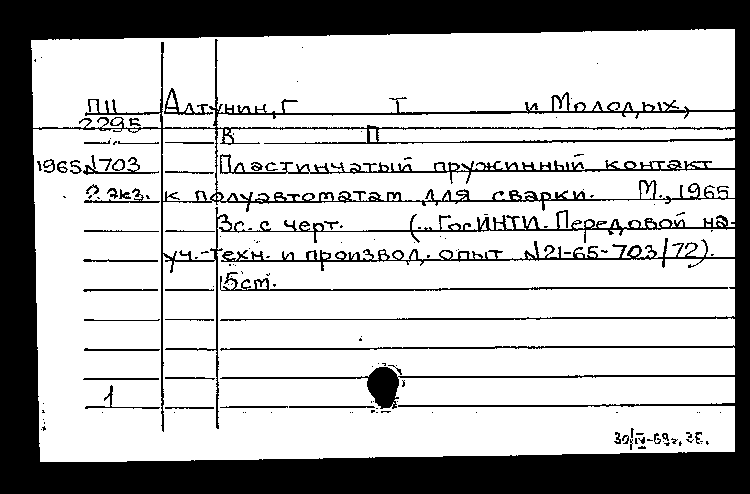 П11 Алтунин, Г Т и Молодых,
2295
В П
1965 №703 Пластинчатый пружинный контакт
2 экз. к полуавтоматам для сварки. М., 1965
3с. с черт. (...ГосИНТИ. Передовой на-
уч.-техн. и производ. опыт №21-65-703/72).
15ст.
1
30/IV-69г.